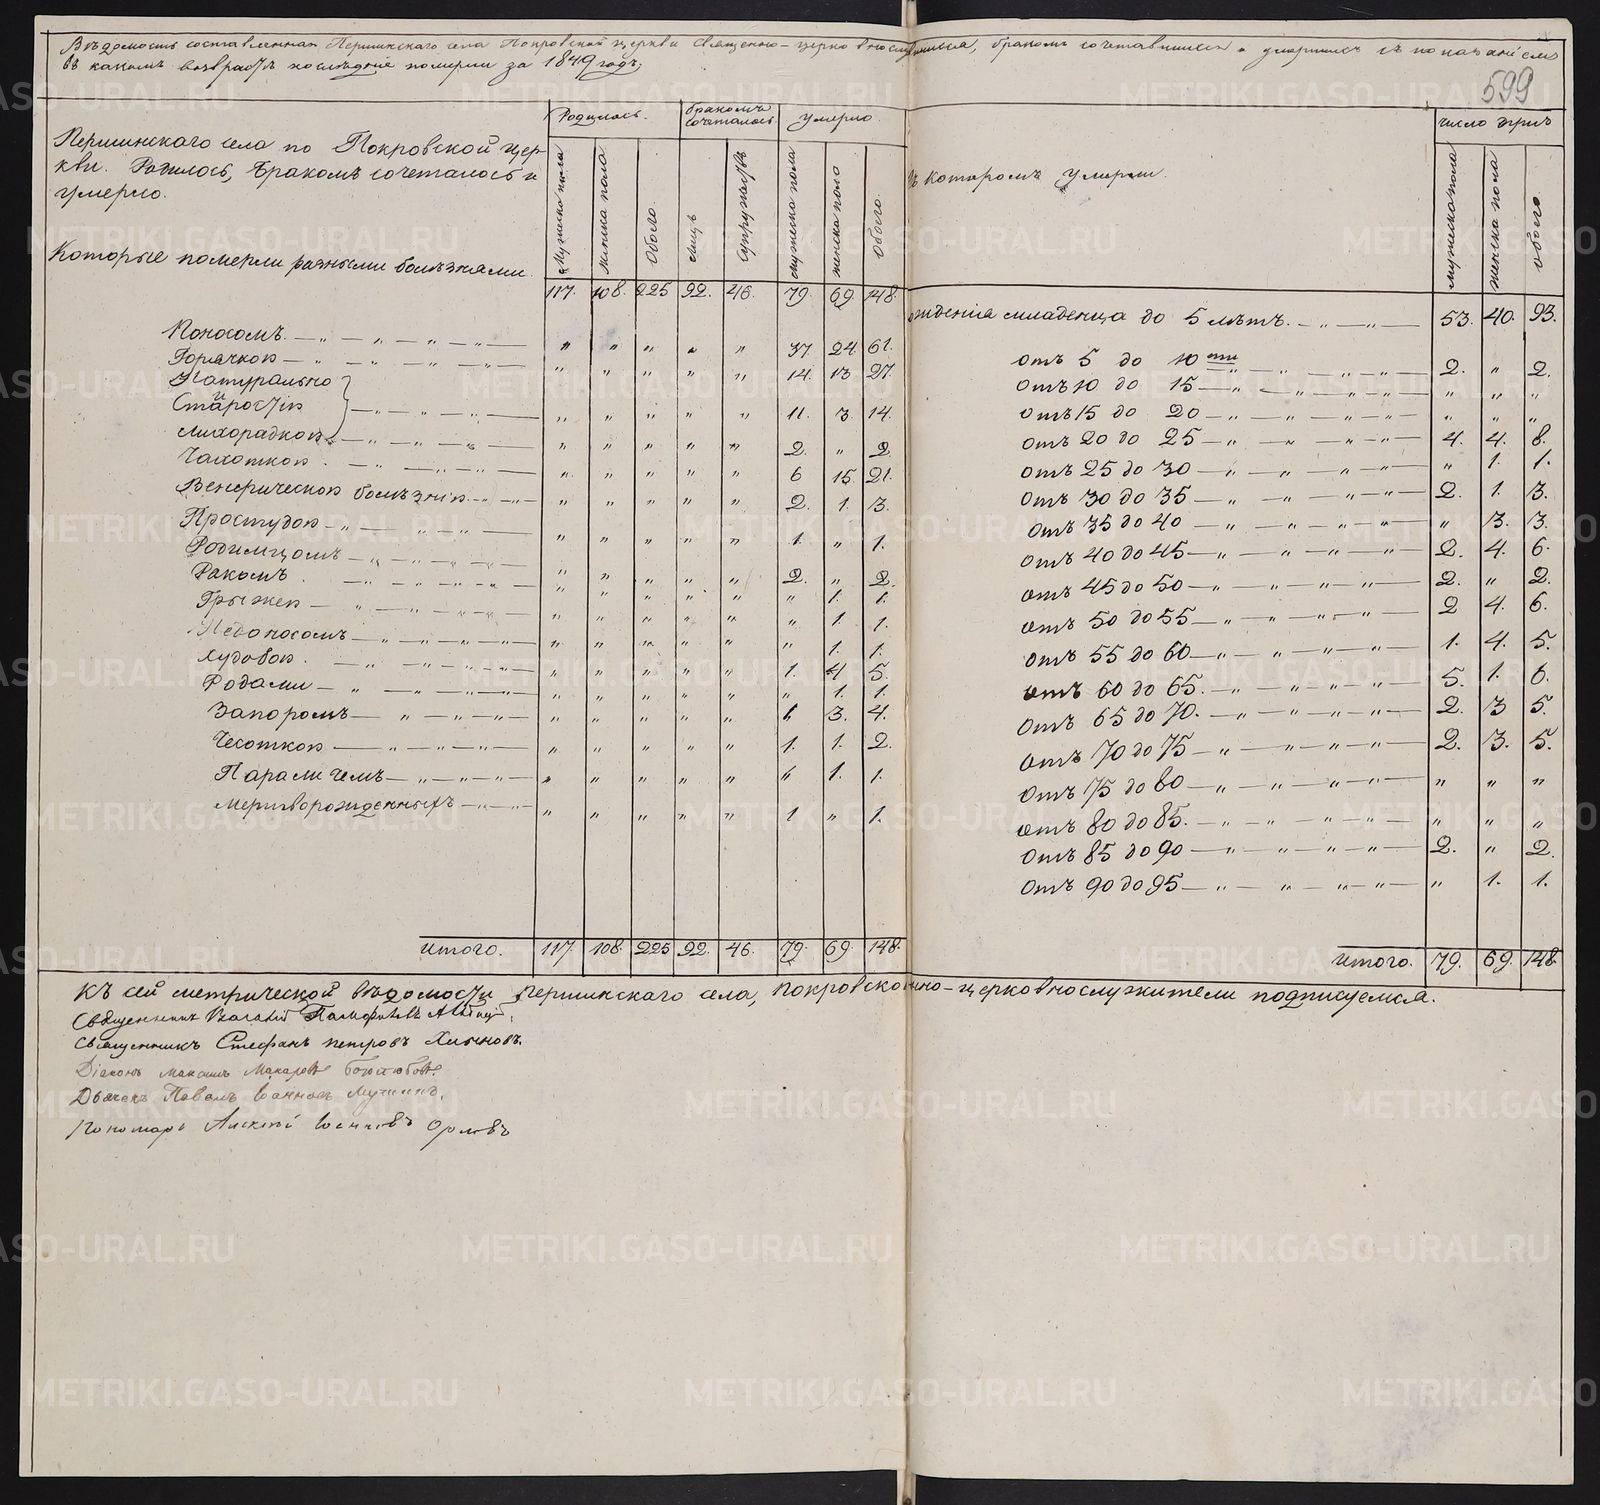 Вѣдомость составленная Першинскаго села Покровской церкви Священно-церковнослужителями, бракомъ сочетавшихся и умершихъ съ показаніемъ
въ какомъ возрастѣ послѣдніе померли за 1849 годъ;
599
Першинскаго села по Покровской цер-
кви. Родилось, бракомъ сочеталось и
умерло.
Которые померли разными болѣзнями.
Родилось.
бракомъ сочеталось
умерло.
мужеска пола
женска пола
обоего
лицъ
супружествъ
мужеска пола
женска пола
обоего
117. 108. 225 92. 46. 79. 69. 148.
Поносомъ. — „ — „ — „ — „ „ „ „ „ 37. 24. 61.
Горячкою — „ — „ — „ — „ „ „ „ „ 14. 13 27.
Натурально
и
Старостію — „ — „ — „ „ „ „ „ 11. 3. 14.
Лихорадкою — „ — „ — „ „ „ „ „ 2. „ 2.
Чахоткою. — „ — „ — „ „ „ „ „ 6 15. 21.
Венерическою болѣзнію — „ — „ „ „ „ „ 2. 1. 3.
Простудою — „ — „ — „ „ „ „ „ 1. „ 1.
Родимцомъ — „ — „ — „ „ „ „ „ 2. „ 2.
Ракомъ. — „ — „ — „ „ „ „ „ „ 1. 1.
Грыжею — „ — „ — „ „ „ „ „ „ 1. 1.
Недоносомъ — „ — „ — „ „ „ „ „ „ 1. 1.
Худобою. — „ — „ — „ „ „ „ „ 1. 4 5.
Родами — „ — „ — „ „ „ „ „ „ 1. 1.
Запоромъ — „ — „ — „ „ „ „ „ 1 3. 4.
Чесоткою — „ — „ — „ „ „ „ „ 1. 1. 2.
Параличемъ — „ — „ — „ „ „ „ „ „ 1. 1.
Мертворожденныхъ — „ — „ „ „ „ „ 1 „ 1.
итого. 117. 108. 225 92. 46. 79. 69 148.
въ которомъ умерли.
число
мужеска пола
женска пола
обоего
рожденія младенца до 5 лѣтъ. — „ — „ — 53. 40. 93.
отъ 5 до 10 ти — „ — „ — 2. „ 2.
отъ 10 до 15 — „ — „ — „ „ „
отъ 15 до 20 — „ — „ — „ „ „
отъ 20 до 25 — „ — „ — 4. 4. 8.
отъ 25 до 30 — „ — „ — „ 1. 1.
отъ 30 до 35 — „ — „ — 2. 1. 3.
отъ 35 до 40 — „ — „ — „ 3. 3.
отъ 40 до 45 — „ — „ — 2. 4. 6.
отъ 45 до 50 — „ — „ — 2. „ 2.
отъ 50 до 55 — „ — „ — 2 4. 6.
отъ 55 до 60 — „ — „ — 1. 4. 5.
отъ 60 до 65. — „ — „ — 5. 1. 6.
отъ 65 до 70. — „ — „ — 2. 3 5.
отъ 70 до 75 — „ — „ — 2. 3. 5.
отъ 75 до 80 — „ — „ — „ „ „
отъ 80 до 85. — „ — „ — „ „ „
отъ 85 до 90 — „ — „ — 2. „ 2.
отъ 90 до 95 — „ — „ — „ 1. 1.
итого. 79. 69. 148
Къ сей метрической вѣдомости Першинскаго села, Покровской церковнослужители подписуемся.
Священникъ
Священникъ Стефанъ Петровъ Хлыновъ.
Діаконъ Максимъ Макаровъ Боголюбовъ.
Дьячекъ Павелъ Іоанновъ
Пономарь Алексѣй Орловъ
METRIKI.GASO-URAL.RU